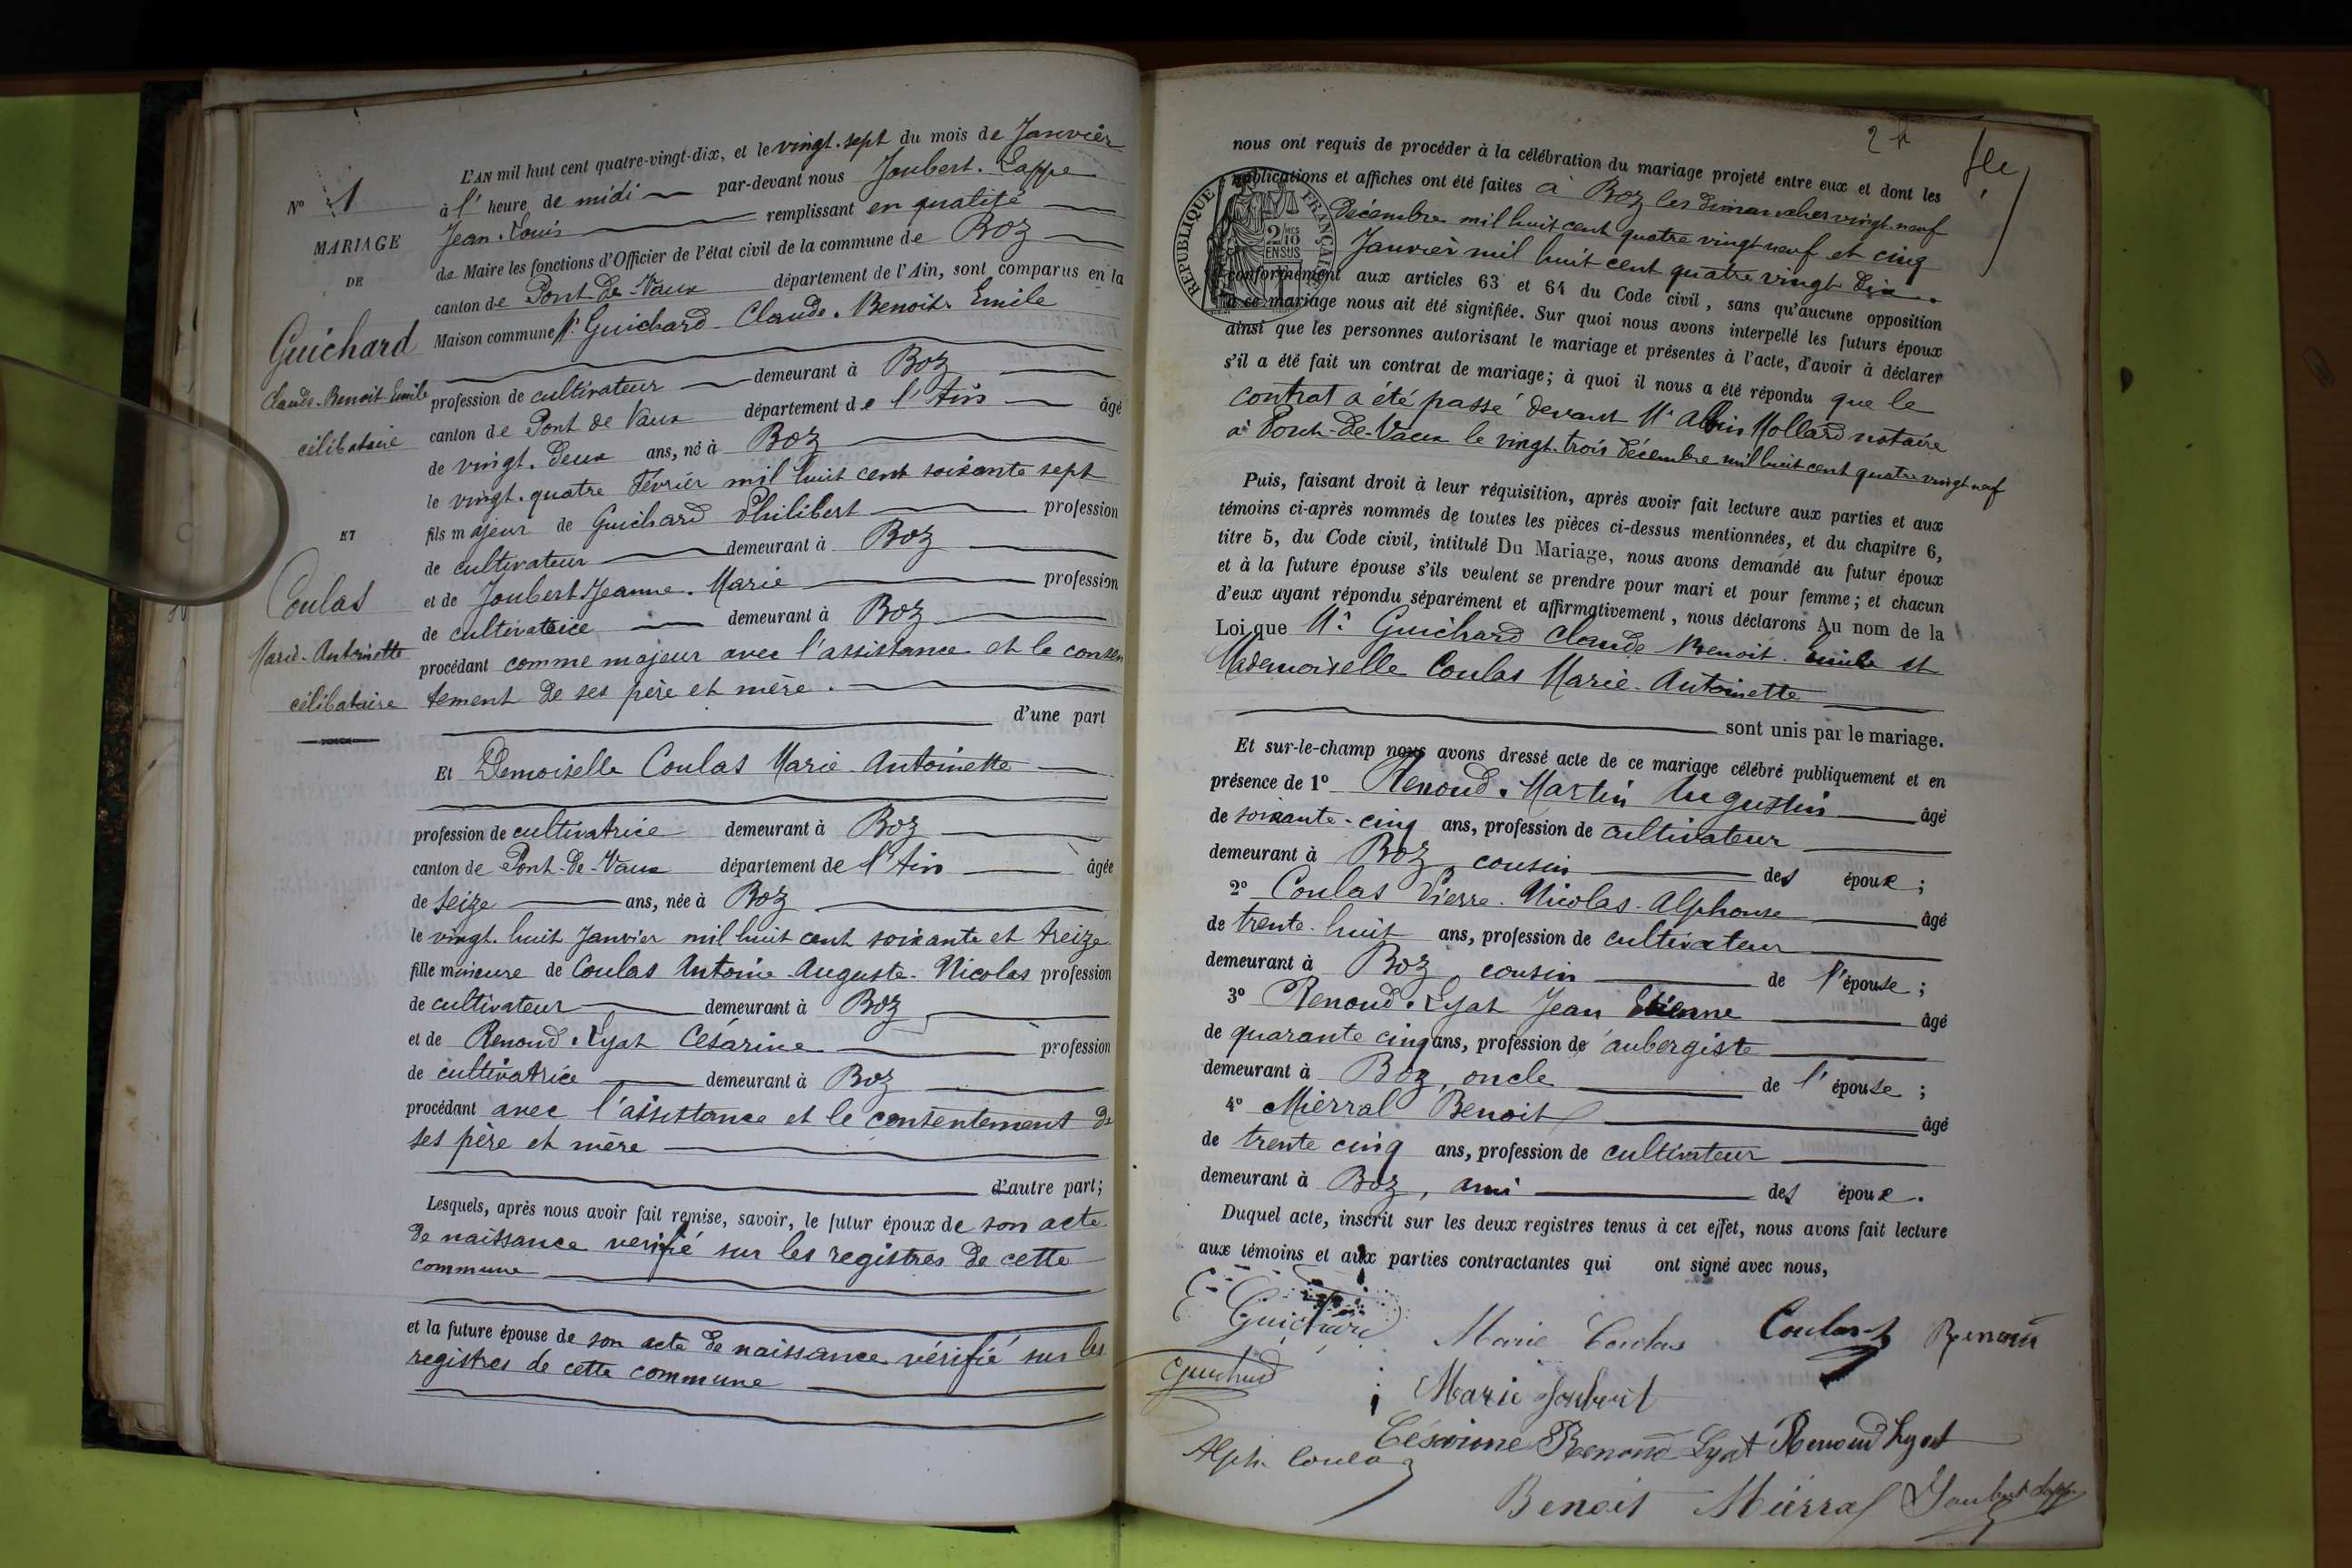 N° 1
MARIAGE
DE
Guichard
Claude-Benoit-Emile
célibataire
ET
Coulas
Marie-Antoinette
célibataire
L'AN mil huit cent quatre-vingt-dix, et le vingt-sept du mois de Janvier
à l' heure de midi par-devant nous Joubert-Lappe
Jean-Louis remplissant en qualité
de Maire les fonctions d'Officier de l'état civil de la commune de Boz
canton de Pont-de-Vaux département de l'Ain, sont comparus en la
Maison commune Mr Guichard Claude-Benoit-Emile
profession de cultivateur demeurant à Boz
canton de Pont de Vaux département de l'Ain âgé
de vingt-deux ans, né à Boz
le vingt-quatre Février mil huit cent soixante sept
fils majeur de Guichard Philibert profession
de cultivateur demeurant à Boz
et de Joubert Jeanne-Marie profession
de cultivatrice demeurant à Boz
procédant comme majeur avec l'assistance et le consen
tement de ses père et mère.
d'une part
Et Demoiselle Coulas Marie-Antoinette
profession de cultivatrice demeurant à Boz
canton de Pont-de-Vaux département de l'Ain âgée
de seize ans, née à Boz
le vingt-huit Janvier mil huit cent soixante et treize
fille mineure de Coulas Antoine-Auguste-Nicolas profession
de cultivateur demeurant à Boz
et de Renoud-Lyat Césarine profession
de cultivatrice demeurant à Boz
procédant avec l'assistance et le consentement de
ses père et mère
d'autre part;
Lesquels, après nous avoir fait remise, savoir, le futur époux de son acte
de naissance verifié sur les registres de cette
commune
et la future épouse de son acte de naissance vérifié sur les
registres de cette commune
2
RÉPUBLIQUE FRANÇAISE
2/10 MES
EN SUS
nous ont requis de procéder à la célébration du mariage projeté entre eux et dont les
publications et affiches ont été faites à Boz les dimanches vingt-neuf
décembre mil huit cent quatre vingt neuf et cinq
Janvier mil huit cent quatre vingt dix
conformément aux articles 63 et 64 du Code civil, sans qu'aucune opposition
à ce mariage nous ait été signifiée. Sur quoi nous avons interpellé les futurs époux
ainsi que les personnes autorisant le mariage et présentes à l'acte, d'avoir à déclarer
s'il a été fait un contrat de mariage; à quoi il nous a été répondu que le
contrat a été passé devant Me Albin Mollard notaire
à Pont-de-Vaux le vingt-trois décembre mil huit cent quatre vingt neuf
Puis, faisant droit à leur réquisition, après avoir fait lecture aux parties et aux
témoins ci-après nommés de toutes les pièces ci-dessus mentionnées, et du chapitre 6,
titre 5, du Code civil, intitulé Du Mariage, nous avons demandé au futur époux
et à la future épouse s'ils veulent se prendre pour mari et pour femme; et chacun
d'eux ayant répondu séparément et affirmativement, nous déclarons Au nom de la
Loi que Mr Guichard Claude Benoit-Emile et
Mademoiselle Coulas Marie-Antoinette
sont unis par le mariage.
Et sur-le-champ nous avons dressé acte de ce mariage célébré publiquement et en
présence de 1° Renoud-Martin Augustin âgé
de soixante-cinq ans, profession de cultivateur
demeurant à Boz cousin des époux;
2° Coulas Pierre-Nicolas-Alphonse âgé
de trente-huit ans, profession de cultivateur
demeurant à Boz cousin de l'épouse;
3° Renoud-Lyat Jean Etienne âgé
de quarante cinq ans, profession de aubergiste
demeurant à Boz, oncle de l'épouse;
4° Mierral Benoit âgé
de trente cinq ans, profession de cultivateur
demeurant à Boz, ami des époux.
Duquel acte, inscrit sur les deux registres tenus à cet effet, nous avons fait lecture
aux témoins et aux parties contractantes qui ont signé avec nous,
E Guichard Marie Coulas Coulas Renoud
Guichard
Marie Joubert
Césarine Renoud Lyat Renoud Lyat
Alph. Coulas
Benoit Mierral Joubert Lappe